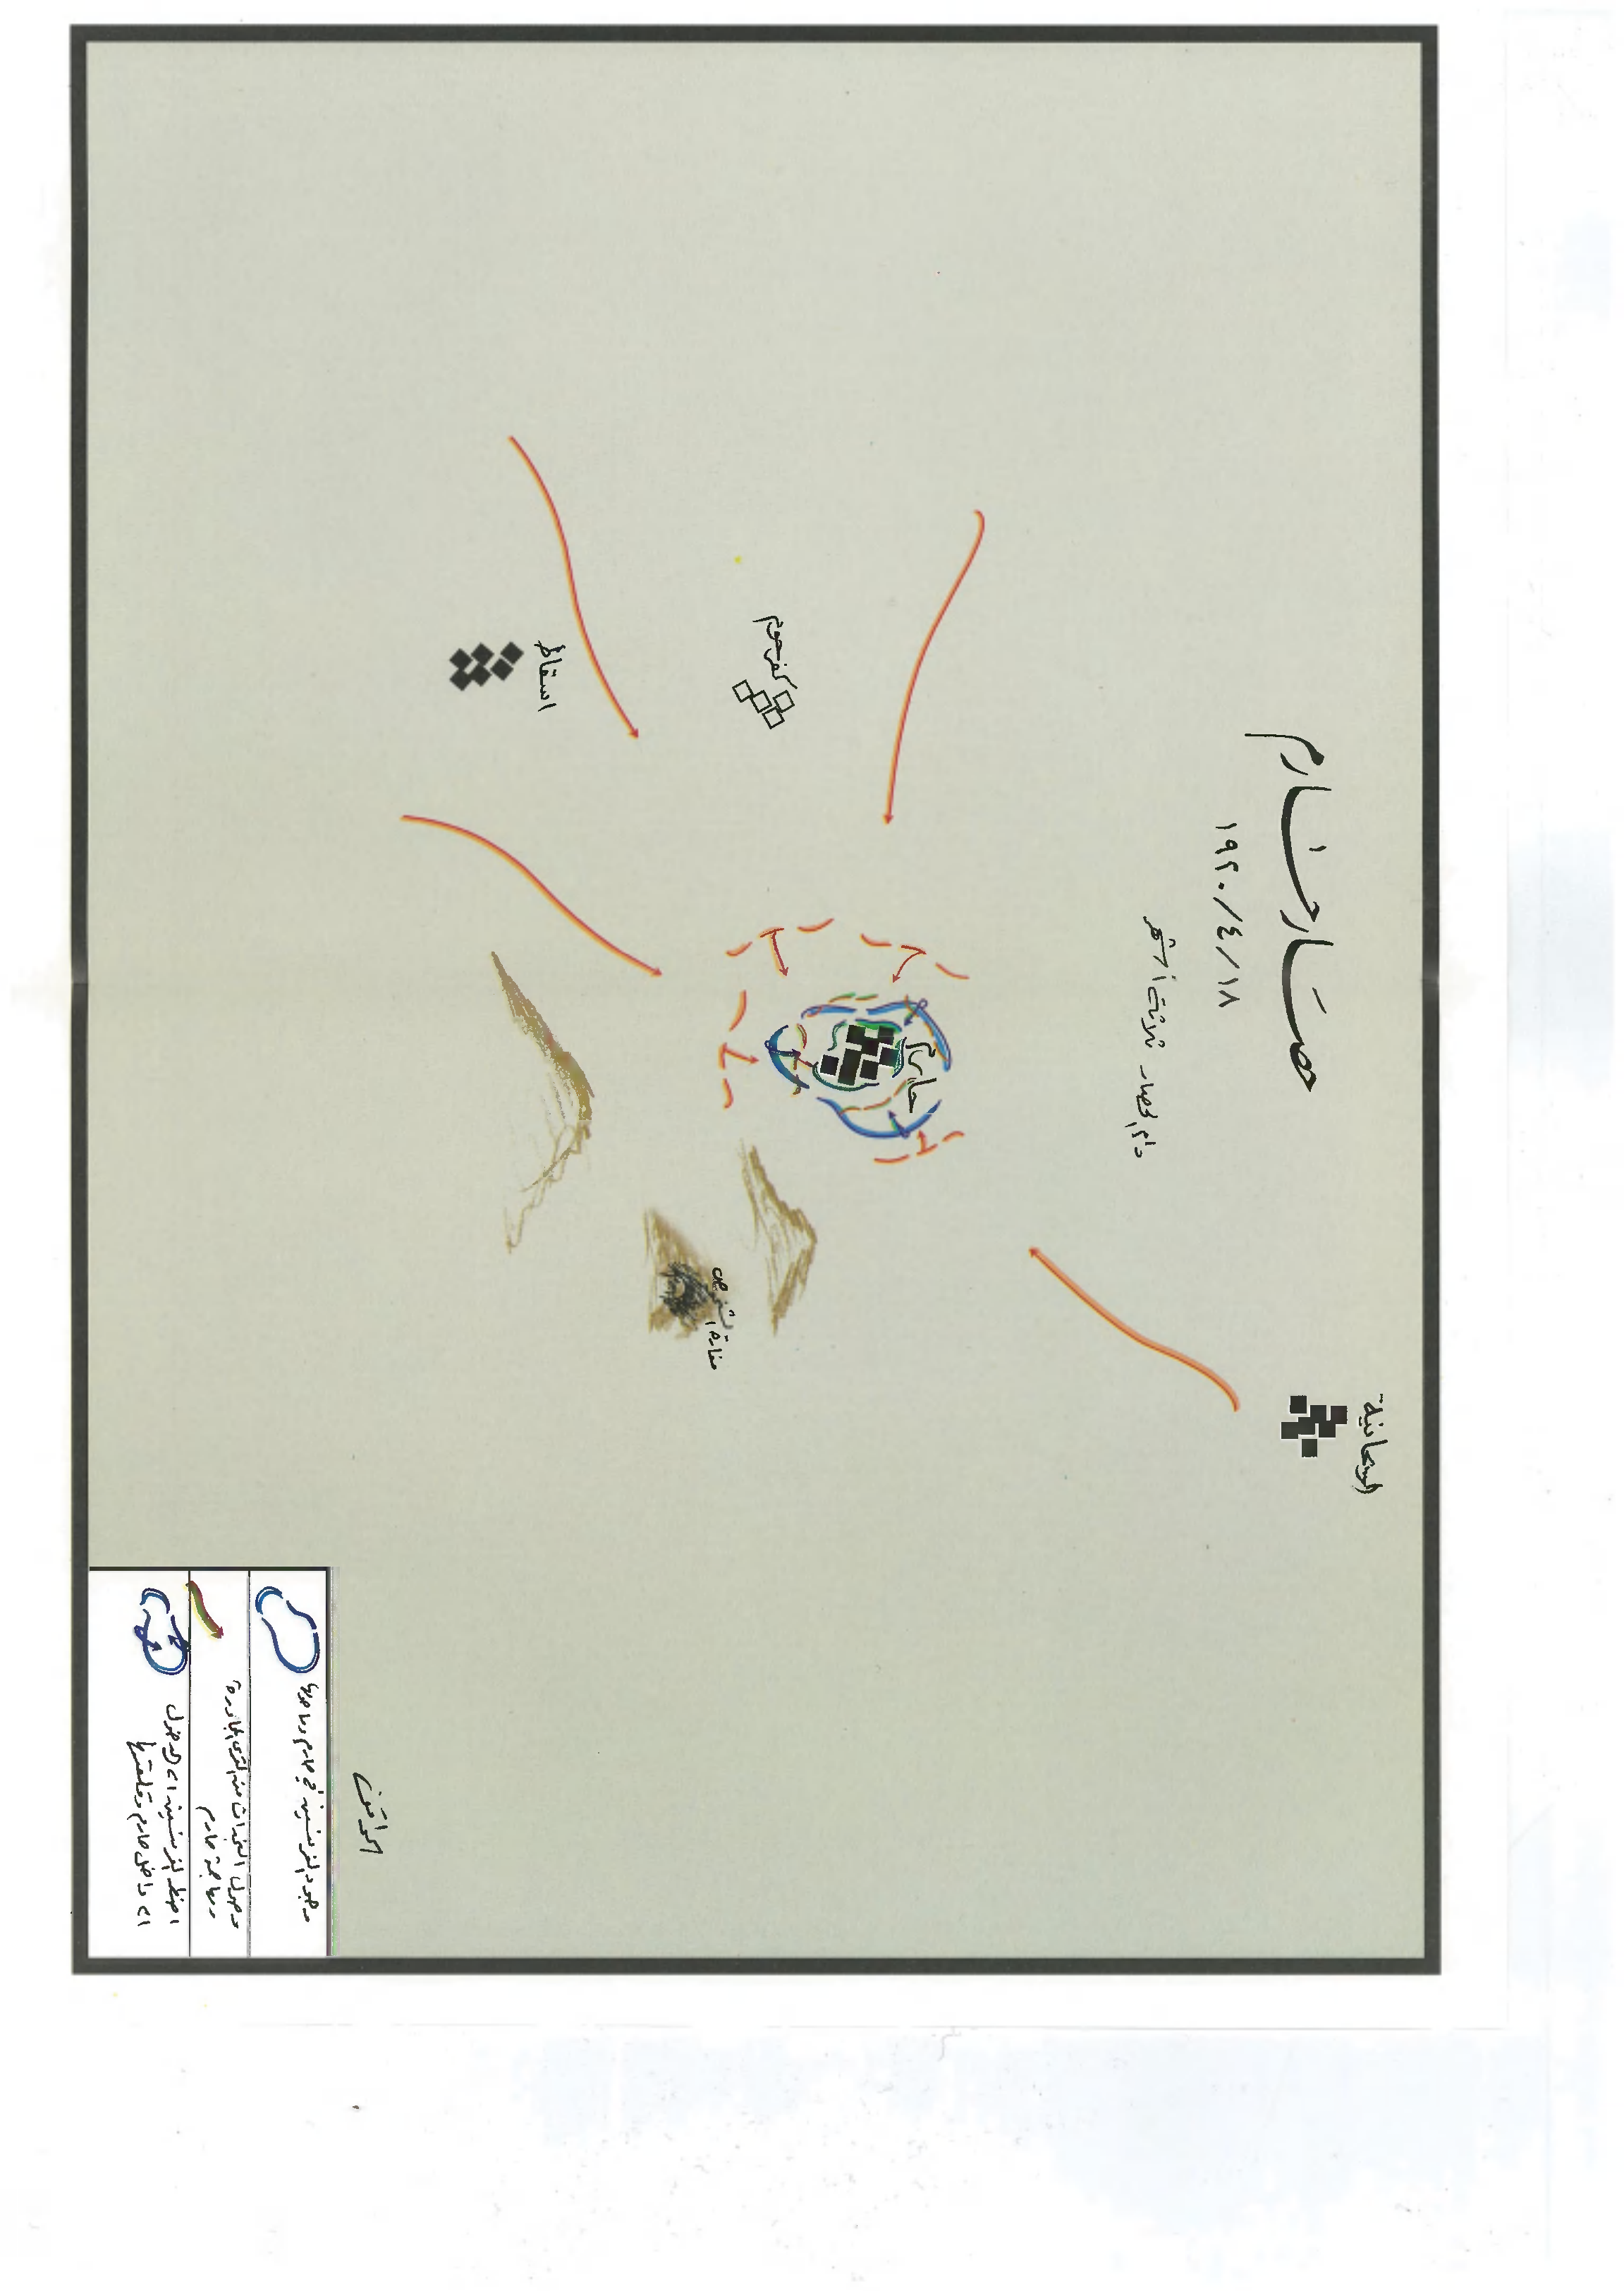 حصار حارم
١٩٢٠/٤/١٨
دام الحصار ثلاثة أشهر
الريحانية
حارم
كفر حوم
اسقاط
مغارة
المواقف
وجود الفرنسيين في حارم وما حولها
وصول الثوار من القرى المجاورة
ومهاجمة حارم
اضطر الفرنسيين الى الدخول
الى داخل حارم وقلعتها